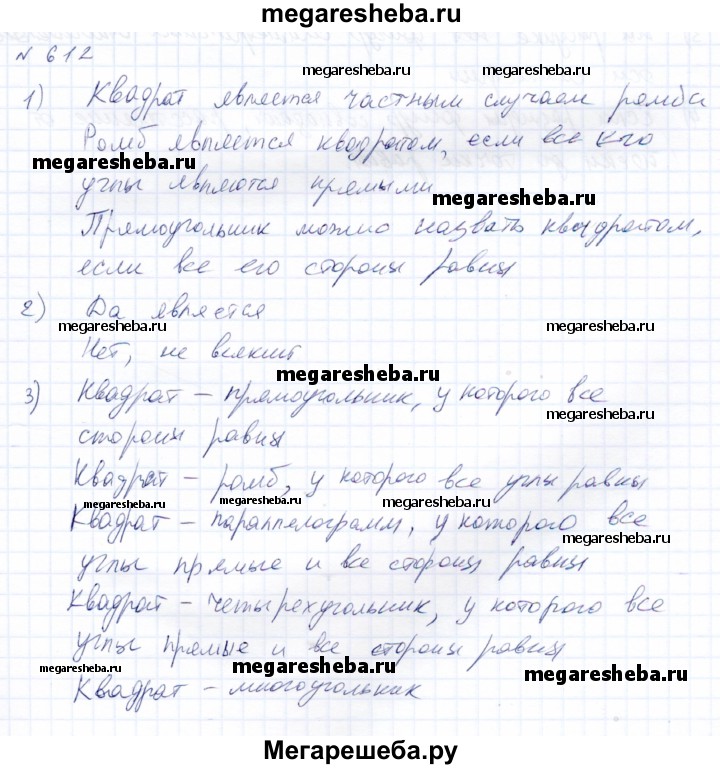 megaresheba.ru
№ 612
megaresheba.ru
megaresheba.ru
1) Квадрат является частным случаем ромба
Ромб является квадратом, если все его
megaresheba.ru
углы являются прямыми
megaresheba.ru
Прямоугольник можно назвать квадратом,
если все его стороны равны
2) Да является
megaresheba.ru
megaresheba.ru
Нет, не всякий
megaresheba.ru
3) Квадрат – прямоугольник, у которого все
megaresheba.ru
стороны равны
Квадрат – ромб, у которого все углы равны
megaresheba.ru
megaresheba.ru
Квадрат – параллелограмм, у которого все
megaresheba.ru
углы прямые и все стороны равны
Квадрат – четырехугольник, у которого все
углы прямые и все стороны равны
megaresheba.ru
megaresheba.ru
megaresheba.ru
Квадрат – многоугольник
Мегарешеба.ру